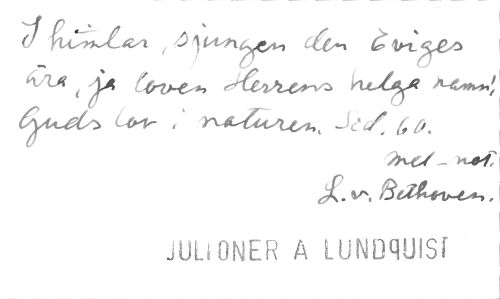 I himlar, sjungen den Eviges
ära, ja loven Herrens helga namn!
Guds lov i naturen. Sid. 60.
mel-not.
L.v. Bethoven.
JULIONER A LUNDQUIST